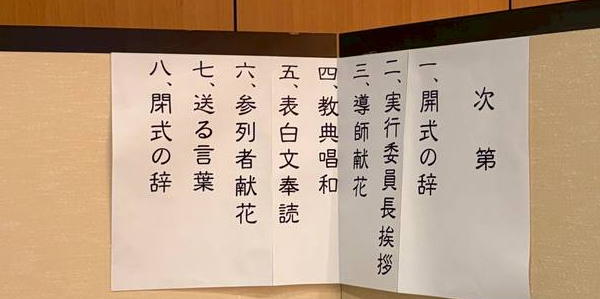 次第
一、開式の辞
二、実行委員長挨拶
三、導師献花
四、教典唱和
五、表白文奉読
六、参列者献花
七、送る言葉
八、閉式の辞